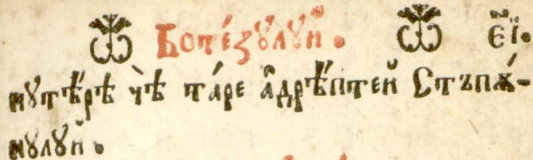 Ботéзȣлȣй. є҃і.
пȣтѣ́рѣ чѣ тáре а̂дрѣ́птей Стъпѫ́-
нȣлȣй.